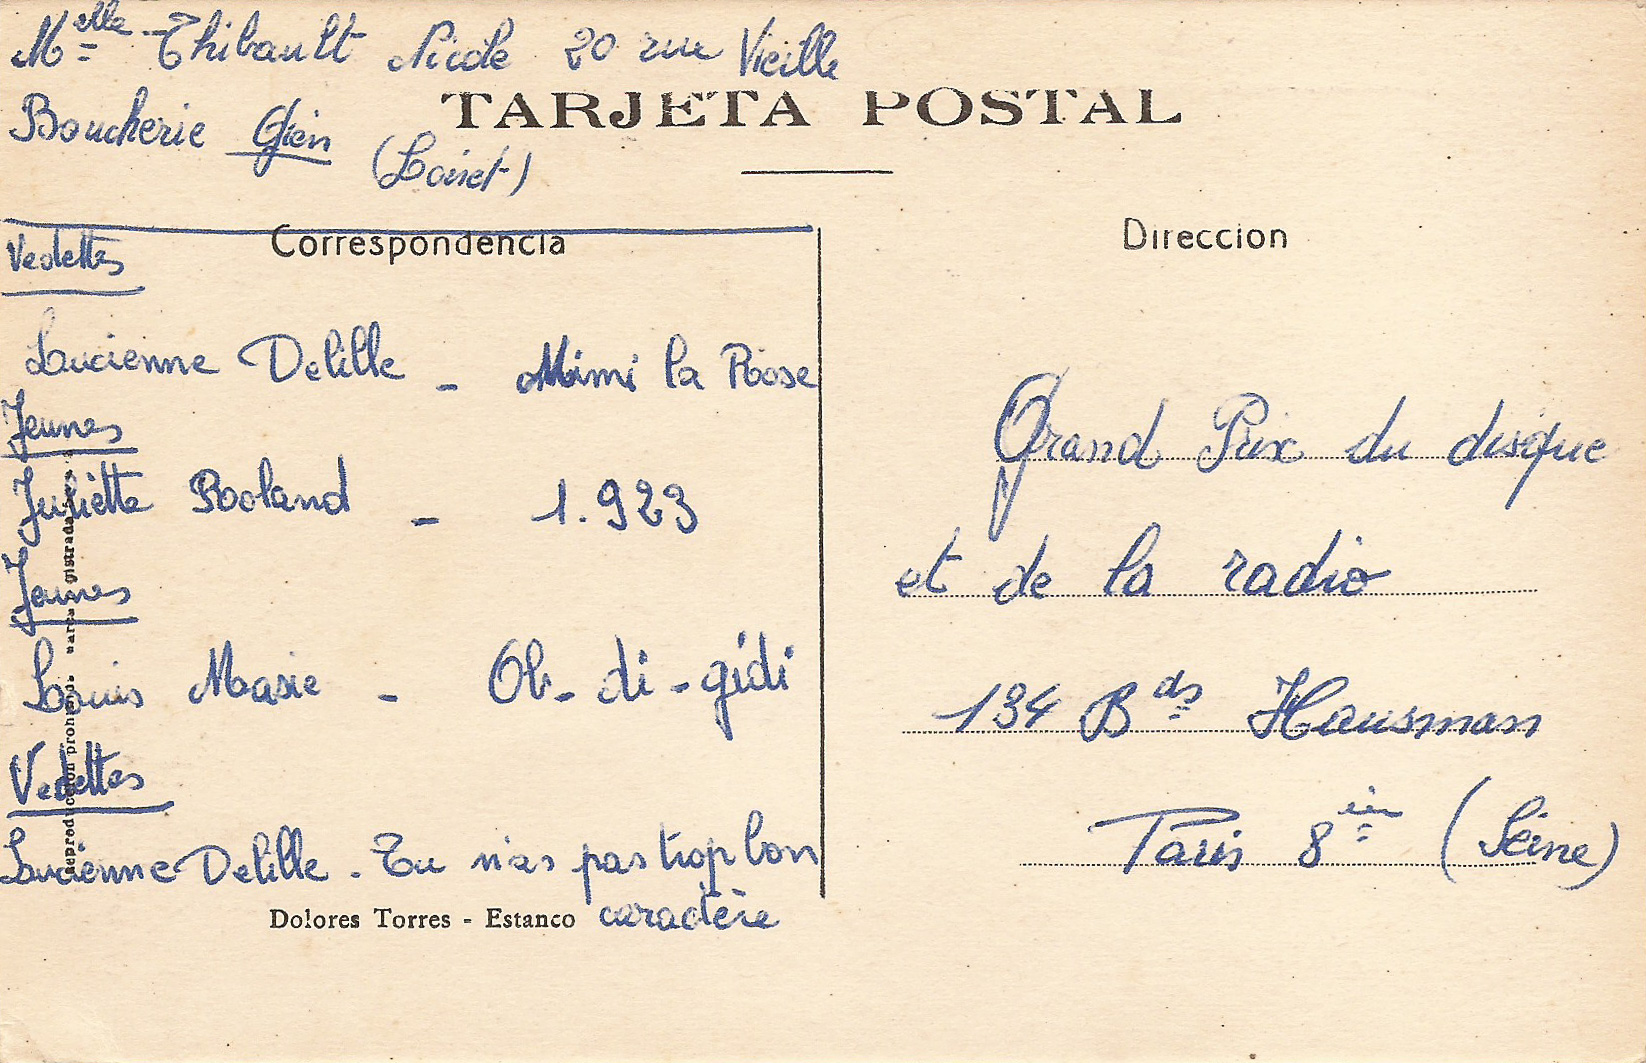 Melle Thibault Nicole 20 rue Vieille
Boucherie Gien
(Loiret)
TARJETA POSTAL
Correspondencia
Vedettes
Lucienne Delille - Mimi la Rose
Jeunes
Juliette Rooland - 1.923
Jeunes
Louis Masie - Ob-di-gidi
Vedettes
Lucienne Delille. Tu n'as pas trop bon
caractère
Dolores Torres - Estanco
Direccion
Grand Prix du disque
et de la radio
134 Bds Hausman
Paris 8in (Seine)